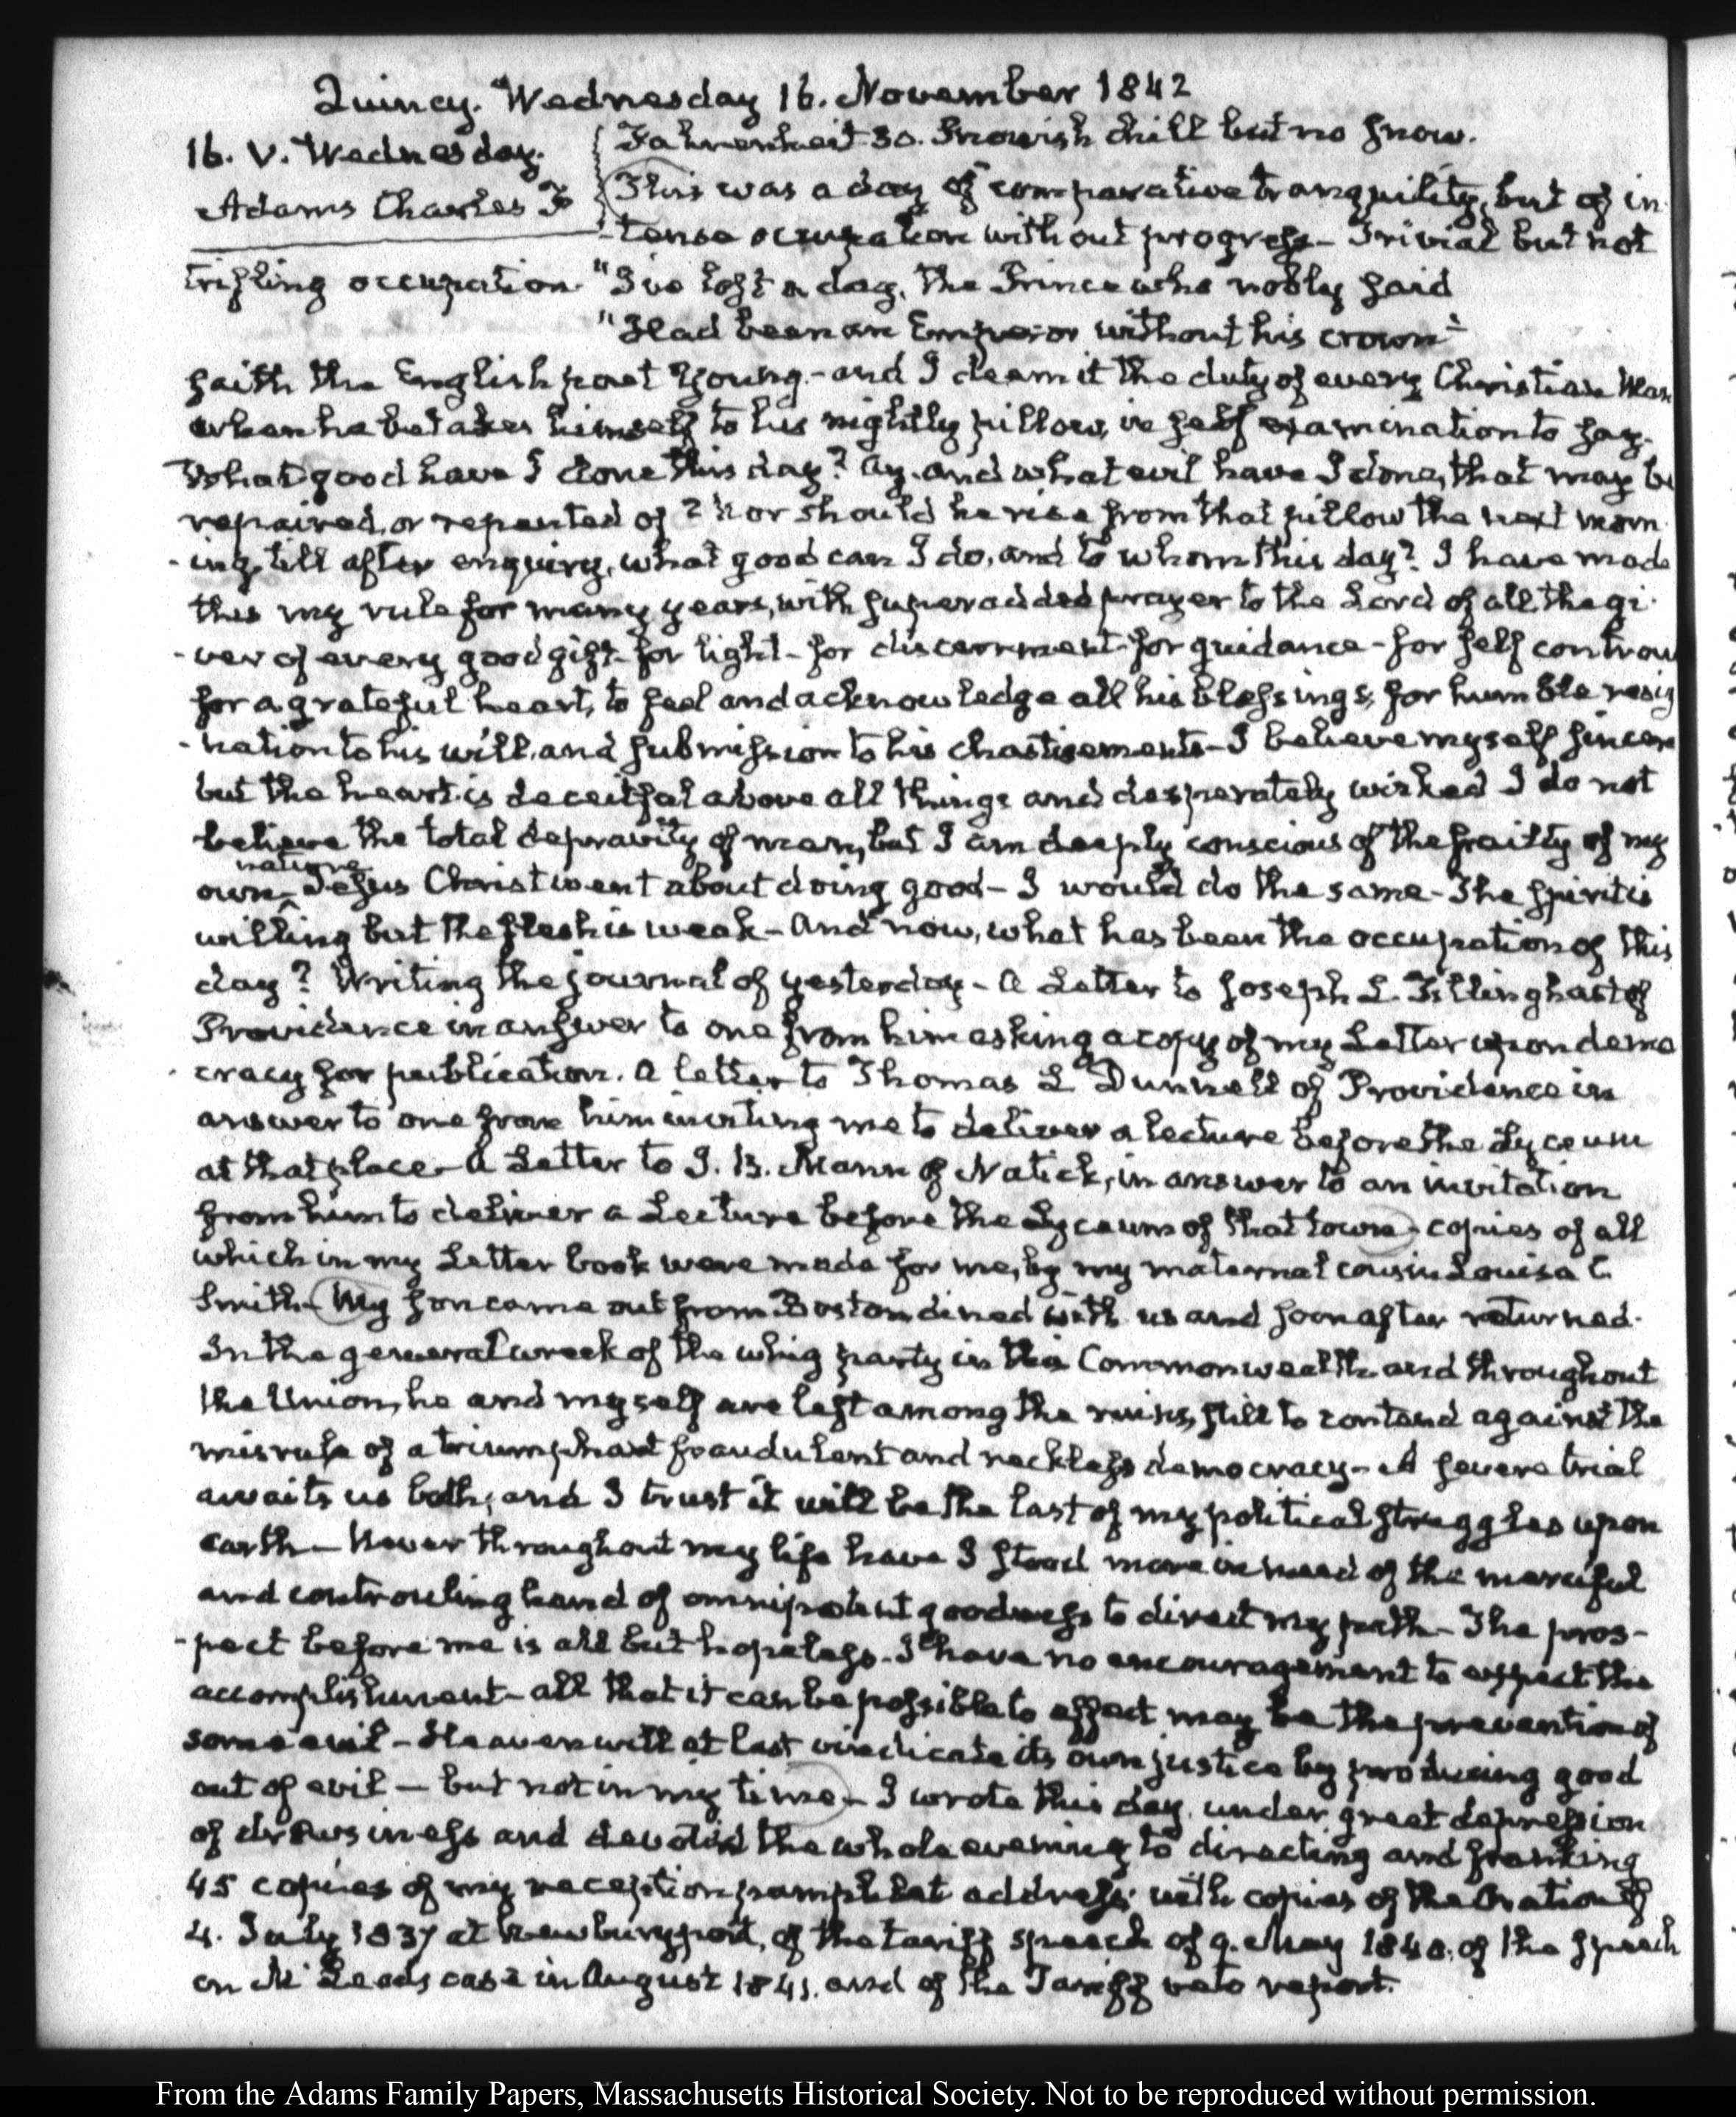 Quincy. Wednesday 16. November 1842
16. V. Wednesday.
Adams Charles F
Fahrenheit 30. Snowish chill but no snow.
This was a day of comparative tranquility, but of in
-tense occupation without progress – Trivial but not
trifling occupation. "I've lost a day, the Prince who nobly said
"Had been an Emperor without his crown"
saith the English poet Young – and I deem it the duty of every Christian Man
when he betakes himself to his nightly pillow, in self examination to say.
What good have I done this day? Ay. and what evil have I done, that may be
repaired, or repented of? Nor should he rise from that pillow the next morn
-ing, till after enquiry, what good can I do, and to whom this day? I have made
this my rule for many years, with superadded prayer to the Lord of all the gi
-ver of every good gift – for light – for discernment – for guidance – for self controul
for a grateful heart, to feel and acknowledge all his blessings, for humble resig
-nation to his will, and submission to his chastisements – I believe myself sincere
but the heart is deceitful above all things and desperately wicked I do not
believe the total depravity of man, but I am deeply conscious of the frailty of my
own ^ nature Jesus Christ went about doing good – I would do the same – The spirit is
willing but the flesh is weak – And now, what has been the occupation of this
day? Writing the journal of yesterday – A Letter to Joseph L. Tillinghast of
Providence in answer to one from him asking a copy of my Letter upon demo
cracy for publication. A letter to Thomas L Dunnell of Providence in
answer to one from him inviting me to deliver a lecture before the Lyceum
at that place – A Letter to J. B. Mann of Natick, in answer to an invitation
from him to deliver a Lecture before the Lyceum of that town – copies of all
which in my Letter book were made for me, by my maternal cousin Louisa C.
Smith – My son came out from Boston dined with us and soon after returned.
In the general wreck of the whig party in this Commonwealth and throughout
the Union, he and myself are left among the ruins, still to contend against the
misrule of a triumphant fraudulent and reckless democracy – A severe trial
awaits us both, and I trust it will be the last of my political struggles upon
earth – Never throughout my life have I stood more in need of the merciful
and controuling hand of omnipotent goodness to direct my path – The pros-
-pect before me is all but hopeless. I have no encouragement to expect the
accomplishment – all that it can be possible to effect may be the prevention of
some evil – Heaven will at last vindicate its own justice by producing good
out of evil – but not in my time – I wrote this day, under great depression
of drowsiness and devoted the whole evening to directing and franking
45 copies of my reception pamphlet address with copies of the Oration of
4. July 1837 at Newburyport, of the tariff speech of 9. May 1840. of the speech
on Mc Leods case in August 1841. and of the Tariff veto report.
From the Adams Family Papers, Massachusetts Historical Society. Not to be reproduced without permission.